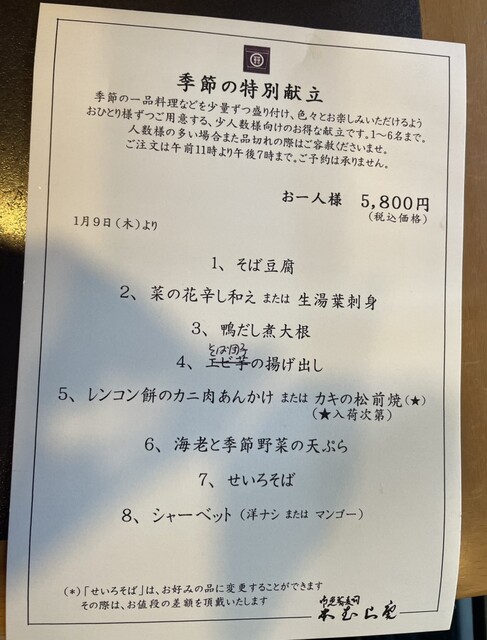 季節の特別献立
季節の一品料理などを少量ずつ盛り付け、色々とお楽しみいただけるよう
おひとり様ずつご用意する、少人数様向けのお得な献立です。1〜6名まで。
人数様の多い場合また品切れの際はご容赦くださいませ。
ご注文は午前11時より午後7時まで。ご予約は承りません。
お一人様 5,800円
(税込価格)
1月9日(木)より
1、そば豆腐
2、菜の花辛し和え または 生湯葉刺身
3、鴨だし煮大根
そば団子
4、エビ芋の揚げ出し
5、レンコン餅のカニ肉あんかけ または カキの松前焼(★)
(★入荷次第)
6、海老と季節野菜の天ぷら
7、せいろそば
8、シャーベット(洋ナシ または マンゴー)
(*)「せいろそば」は、お好みの品に変更することができます
その際は、お値段の差額を頂戴いたします